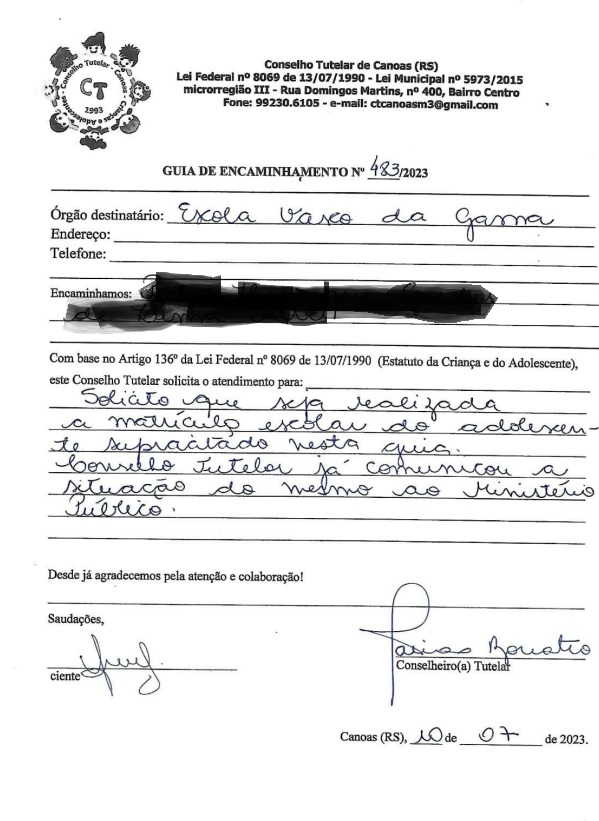 Conselho Tutelar - Canoas - Crianças e Adolescentes
CT
1993
Conselho Tutelar de Canoas (RS)
Lei Federal nº 8069 de 13/07/1990 - Lei Municipal nº 5973/2015
microrregião III - Rua Domingos Martins, nº 400, Bairro Centro
Fone: 99230.6105 - e-mail: ctcanoasm3@gmail.com
GUIA DE ENCAMINHAMENTO Nº 483/2023
Órgão destinatário: Escola Vasco da Gama
Endereço:
Telefone:
Encaminhamos:
Com base no Artigo 136º da Lei Federal nº 8069 de 13/07/1990 (Estatuto da Criança e do Adolescente),
este Conselho Tutelar solicita o atendimento para:
Solicito que seja realizada
a matrícula escolar do adolescen-
te supracitado nesta guia.
Conselho Tutelar já comunicou a
situação do mesmo ao Ministério
Público.
Desde já agradecemos pela atenção e colaboração!
Saudações,
ciente
Conselheiro(a) Tutelar
Canoas (RS), 10 de 07 de 2023.